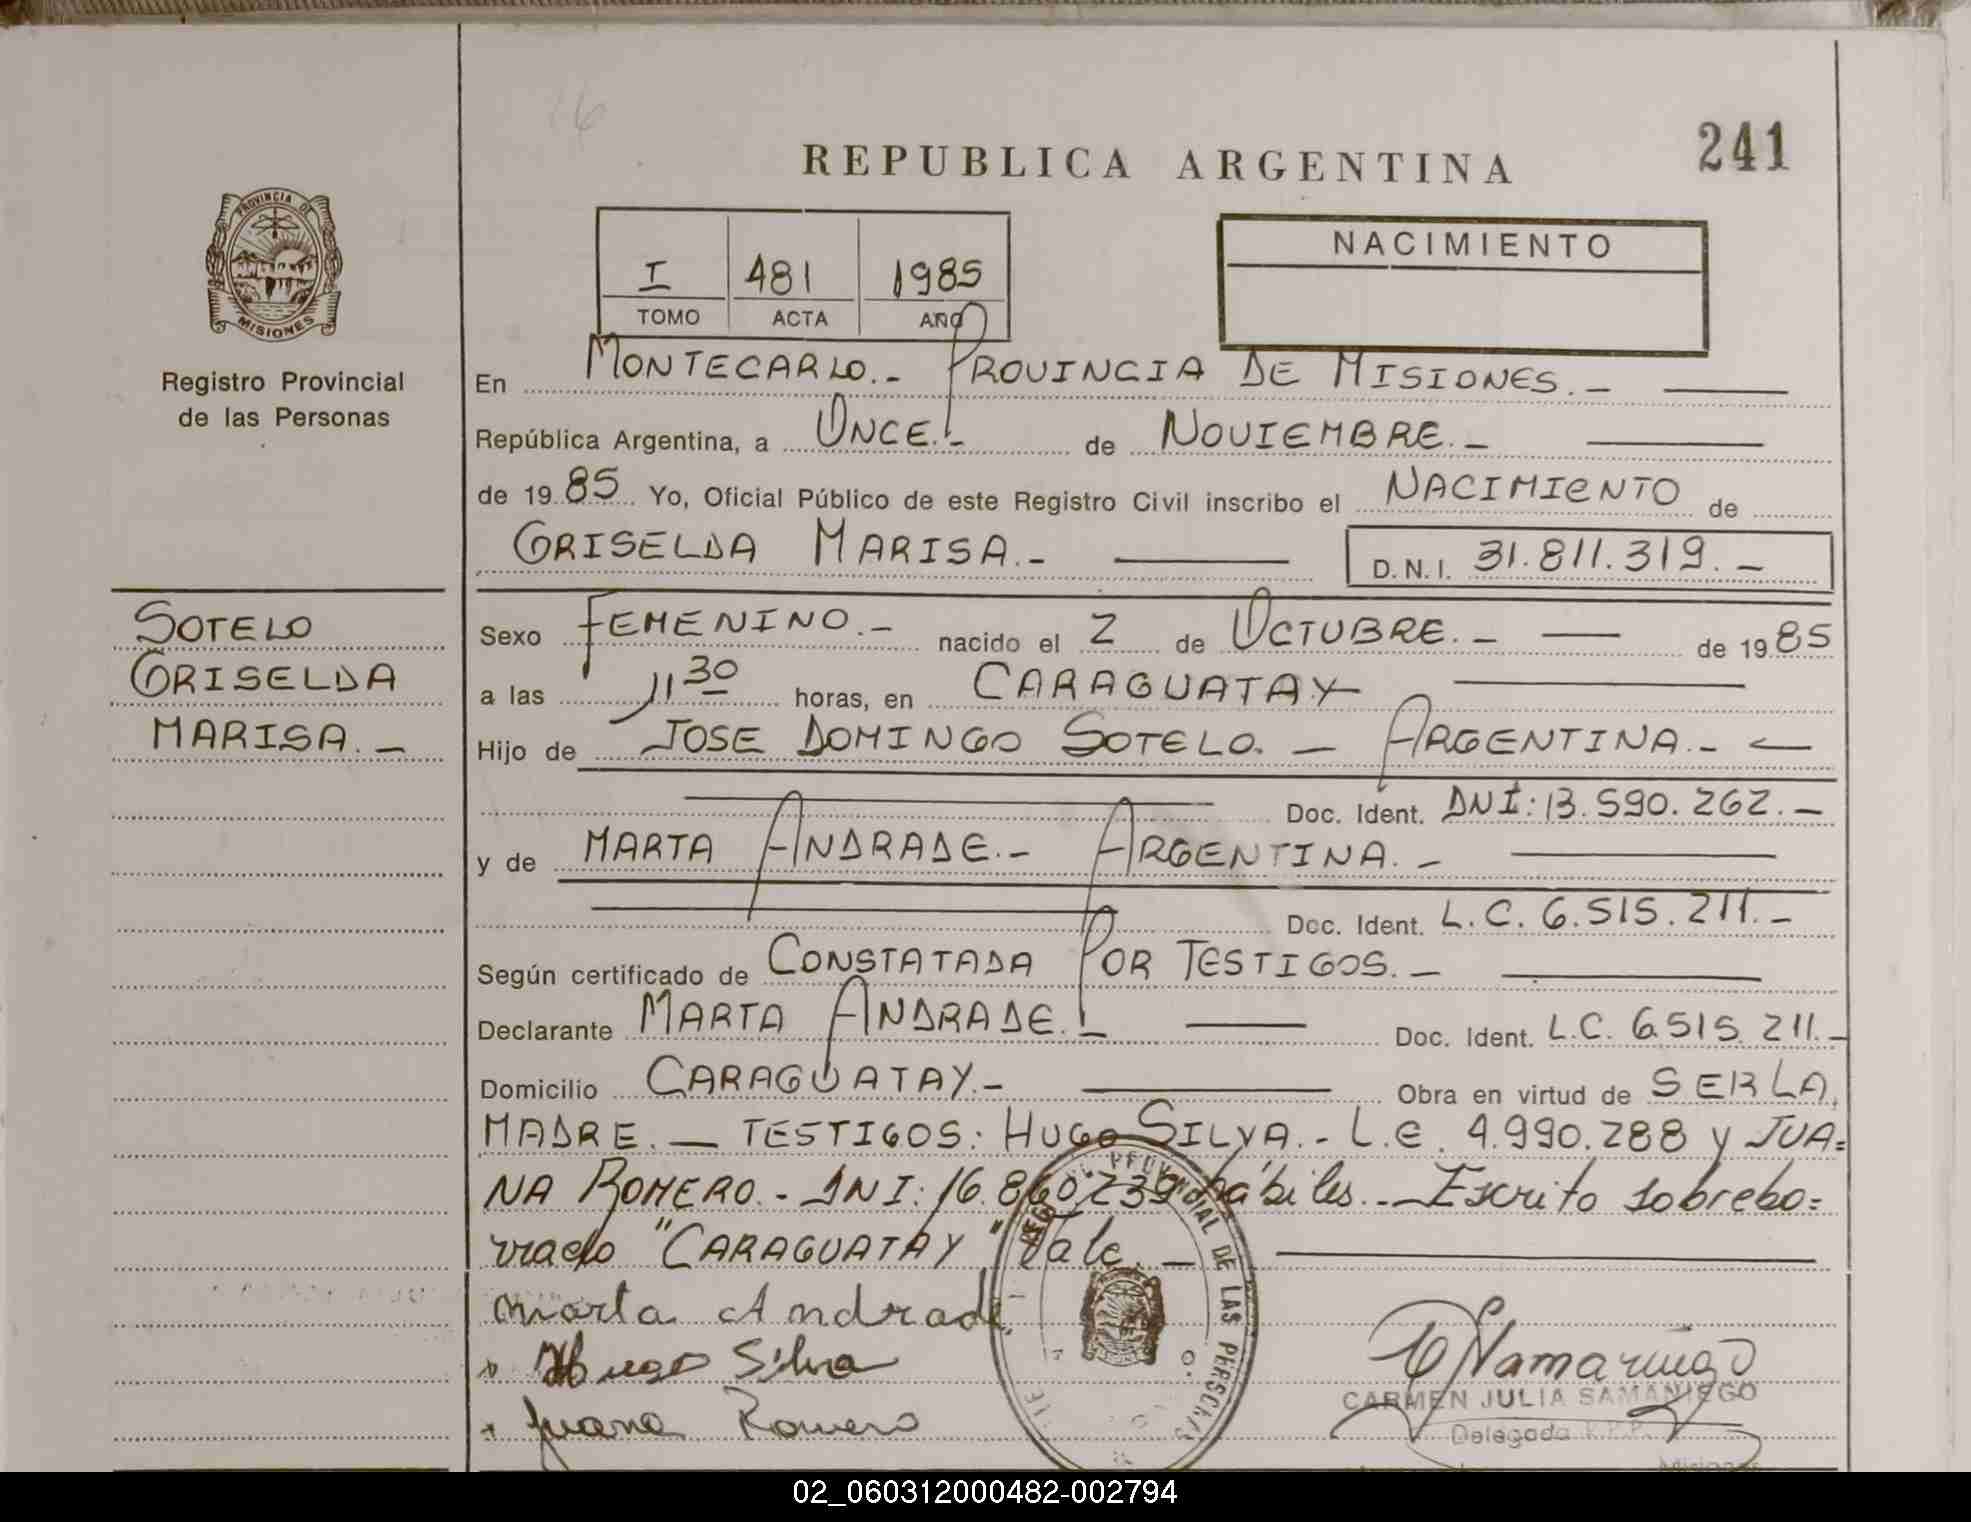 REPUBLICA ARGENTINA
241
PROVINCIA DE
MISIONES
Registro Provincial
de las Personas
I 481 1985
TOMO ACTA AÑO
NACIMIENTO
En MONTECARLO.- PROVINCIA DE MISIONES.-
República Argentina, a ONCE.- de NOVIEMBRE.-
de 1985 Yo, Oficial Público de este Registro Civil inscribo el NACIMIENTO de
GRISELDA MARISA.- D.N.I. 31.811.319.-
SOTELO
GRISELDA
MARISA.-
Sexo FEMENINO.- nacido el 2 de OCTUBRE.- de 1985
a las 11 30 horas, en CARAGUATAY
Hijo de JOSE DOMINGO SOTELO.- ARGENTINA.-
Doc. Ident. DNI: 13.590.262.-
y de MARTA ANDRADE.- ARGENTINA.-
Doc. Ident. L.C. 6.515.211.-
Según certificado de CONSTATADA POR TESTIGOS.-
Declarante MARTA ANDRADE.- Doc. Ident. L.C. 6.515.211.-
Domicilio CARAGUATAY.- Obra en virtud de SER LA
MADRE.- TESTIGOS: HUGO SILVA.- L.E. 4.990.288 y JUA=
NA ROMERO.- DNI: 16.860.239 hábiles.- Escrito sobrebo=
rrado "CARAGUATAY" Vale.-
Marta Andrade
Hugo Silva
Juana Romero
DE LAS PERSONAS
CJSamaniego
CARMEN JULIA SAMANIEGO
Delegada R.P.P.
Misiones
02_060312000482-002794